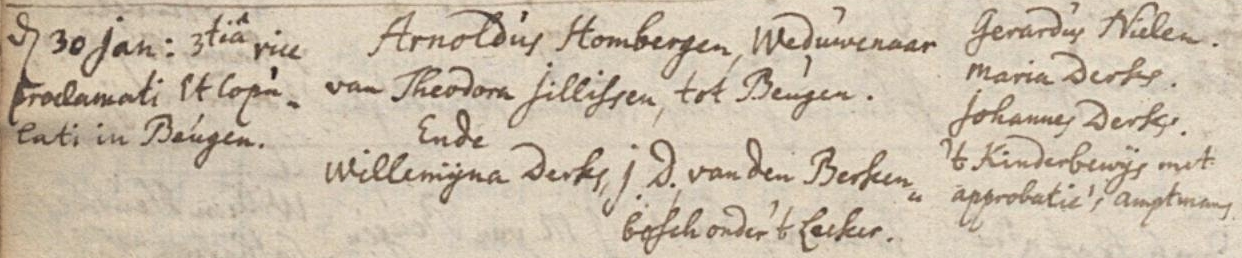 d 30 jan: 3tiâ vice
proclamati Et Copu„
lati in Beugen.
Arnoldus Hombergen, Weduwenaar
van Theodora Jillissen, tot Beugen.
Ende
Willemijna Derks, j D. van den Berken„
bosch onder 't Leeker.
Gerardus Nielen.
Maria Derks.
Johannes Derks.
't Kinderbewijs met
approbatie, amptmans